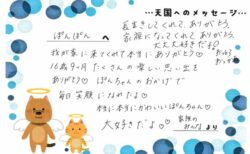 …天国へのメッセージ…
ぽんぽん へ
長生きしてくれて、ありがとう。
家族になってくれて ありがとう
大大大好きだよ♡
我が家に来てくれて本当にありがとう♡
16歳9ヶ月 たくさんの楽しい思い出を
ありがとう♡ ぽんちゃんのおかげで
毎日笑顔になれたよ♡
本当に本当にかわいいぽんちゃん♡
大好きだよ♡♡
家族のみんな より